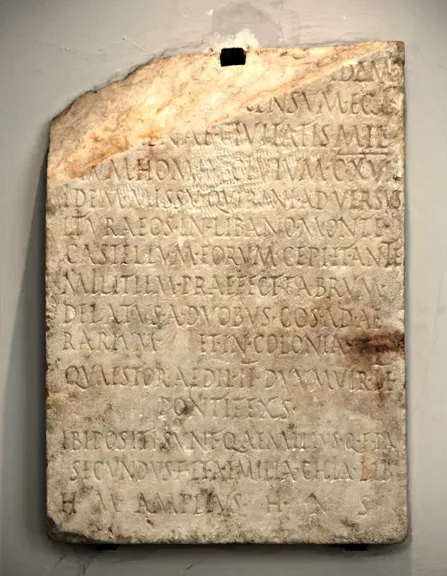 IDEM
CENSVM·EGI
ENAE·CIVITATIS·MIL
LIVM·HOMIN·CIVIVM·CXVII
IDEM·MISSV·QVIRINI·ADVERSVS
ITVRAEOS·IN·LIBANO·MONTE
CASTELLVM·EORVM·CEPI·ET·ANTE
MILITIEM·PRAEFECT·FABRVM
DELATVS·A·DVOBVS·COS·AD·AE
RARIVM ET·IN·COLONIA
QVAESTOR·AEDIL·II·DVVMVIR·II
PONTIFEXS
IBI·POSITI·SVNT·Q·AEMILIVS·Q·F·PAL
SECVNDVS·F·ET·AEMILIA·CHIA·LIB
H M AMPLIVS H N S